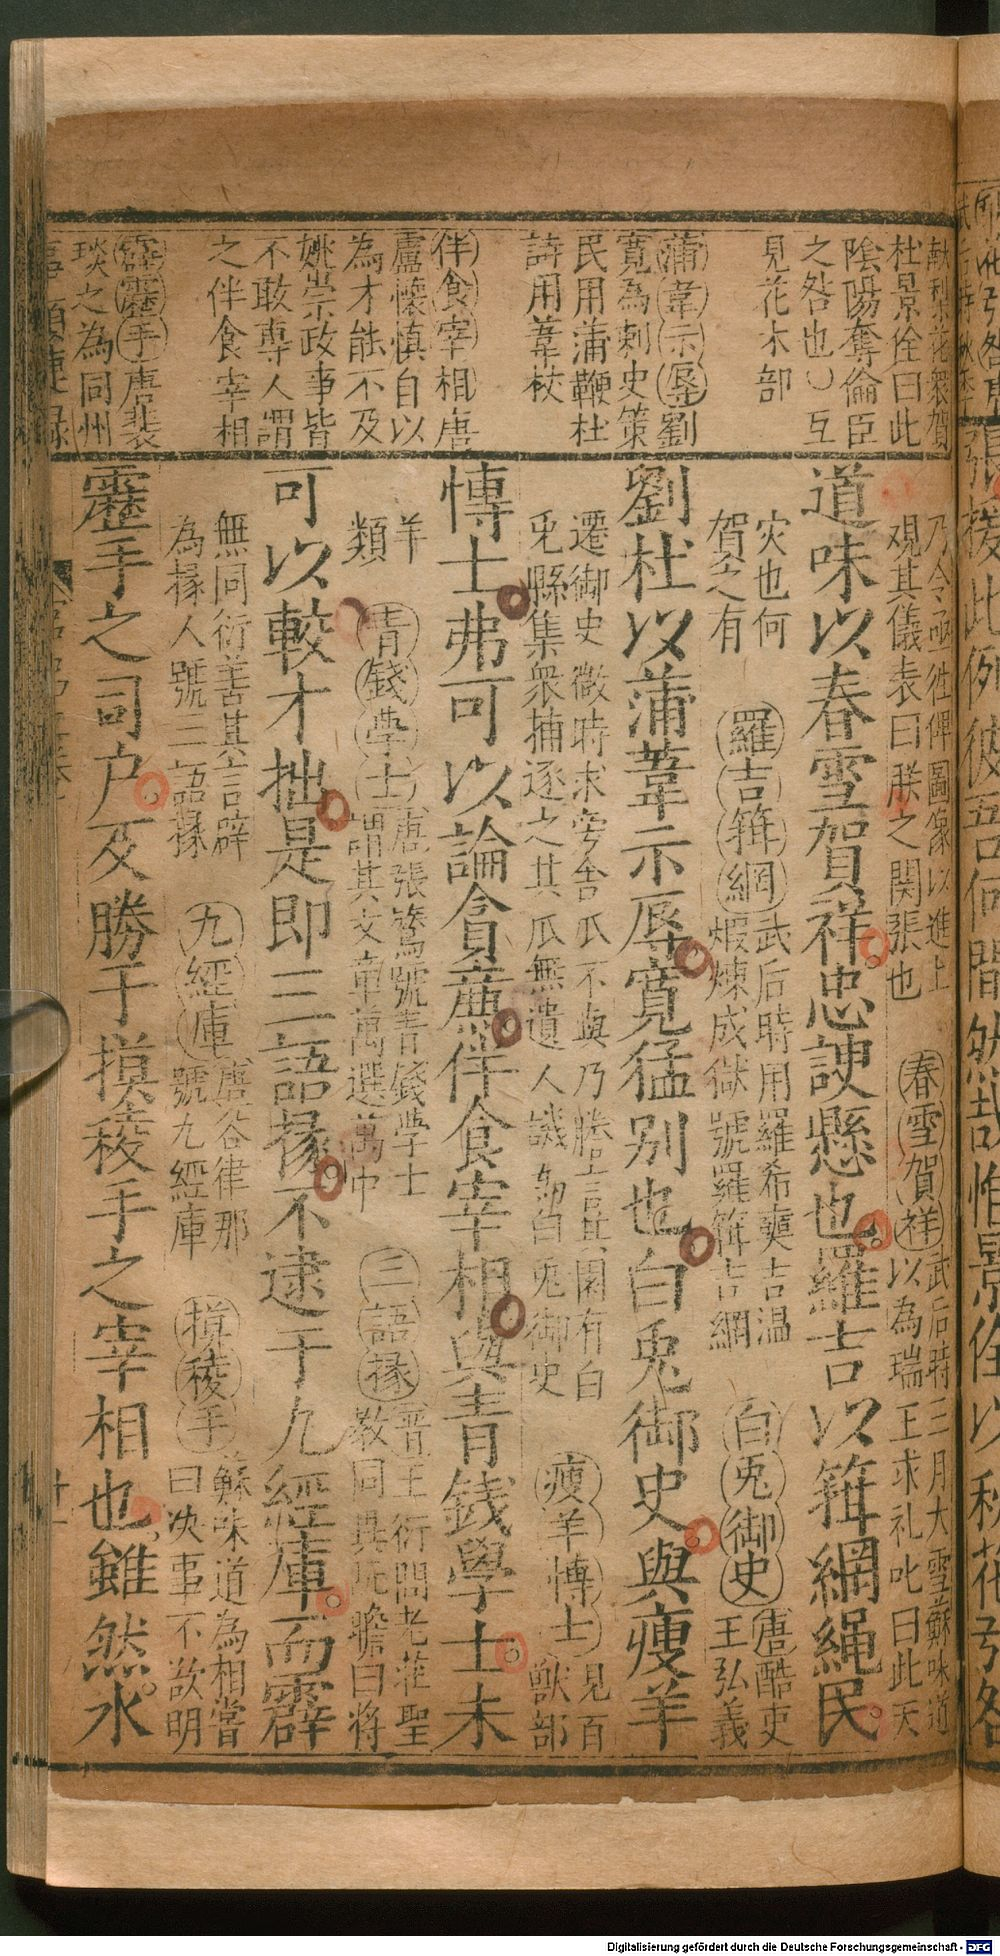 獻梨花衆賀
杜景佺曰此
陰陽奪倫臣
之咎也○互
見花木部
蒲韋示辱劉
寬為刺史策
民用蒲鞭杜
詩用葦杖
伴食宰相唐
盧懷慎自以
為才能不及
姚崇政事皆
不敢專人謂
之伴食宰相
霹靂手唐裴
琰之為同州
乃令亟往俾圖像以進上
觀其儀表曰朕之関張也
春雪賀祥武后時三月大雪蘇味道
以為瑞王求礼叱曰此天
道味以春雪賀祥忠諛懸也羅吉以箝網繩民
灾也何
賀之有
羅吉箝網武后時用羅希奭吉溫
煆煉成獄號羅箝吉網
白兎御史唐酷吏
王弘義
劉杜以蒲葦示辱寬猛別也白兎御史與瘦羊
遷御史微時求旁舍瓜不與乃謄言園有白
兎縣集衆捕逐之其瓜無遺人譏為白兎御史
瘦羊博士見百
獸部
博士弗可以論貪廉伴食宰相與青錢學士未
羊
類
青錢學士唐張鷟號青錢學士
謂其文章萬選萬中
三語掾晋王衍問老莊聖
教同異阮瞻曰將
可以較才拙是即三語掾不逮于九經庫而霹
無同衍善其言辟
為掾人號三語掾
九經庫唐谷律那
號九經庫
摸稜手蘇味道為相嘗
曰决事不欲明
靂手之司户及勝于摸稜手之宰相也雖然水
Digitalisierung gefördert durch die Deutsche Forschungsgemeinschaft - DFG